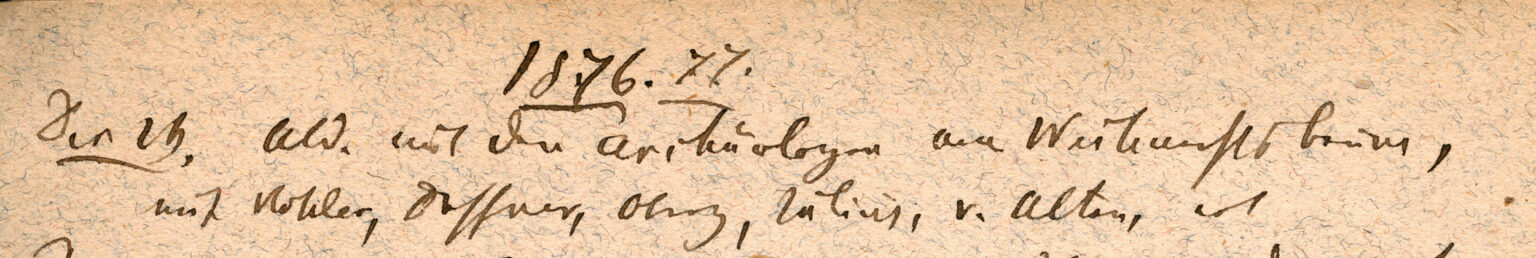 1876. 77.
Dec 24. Abd. mit den Archäologen am Weihnachtsbaum,
mit Köhler, Deffner, Julius, v. Alten,